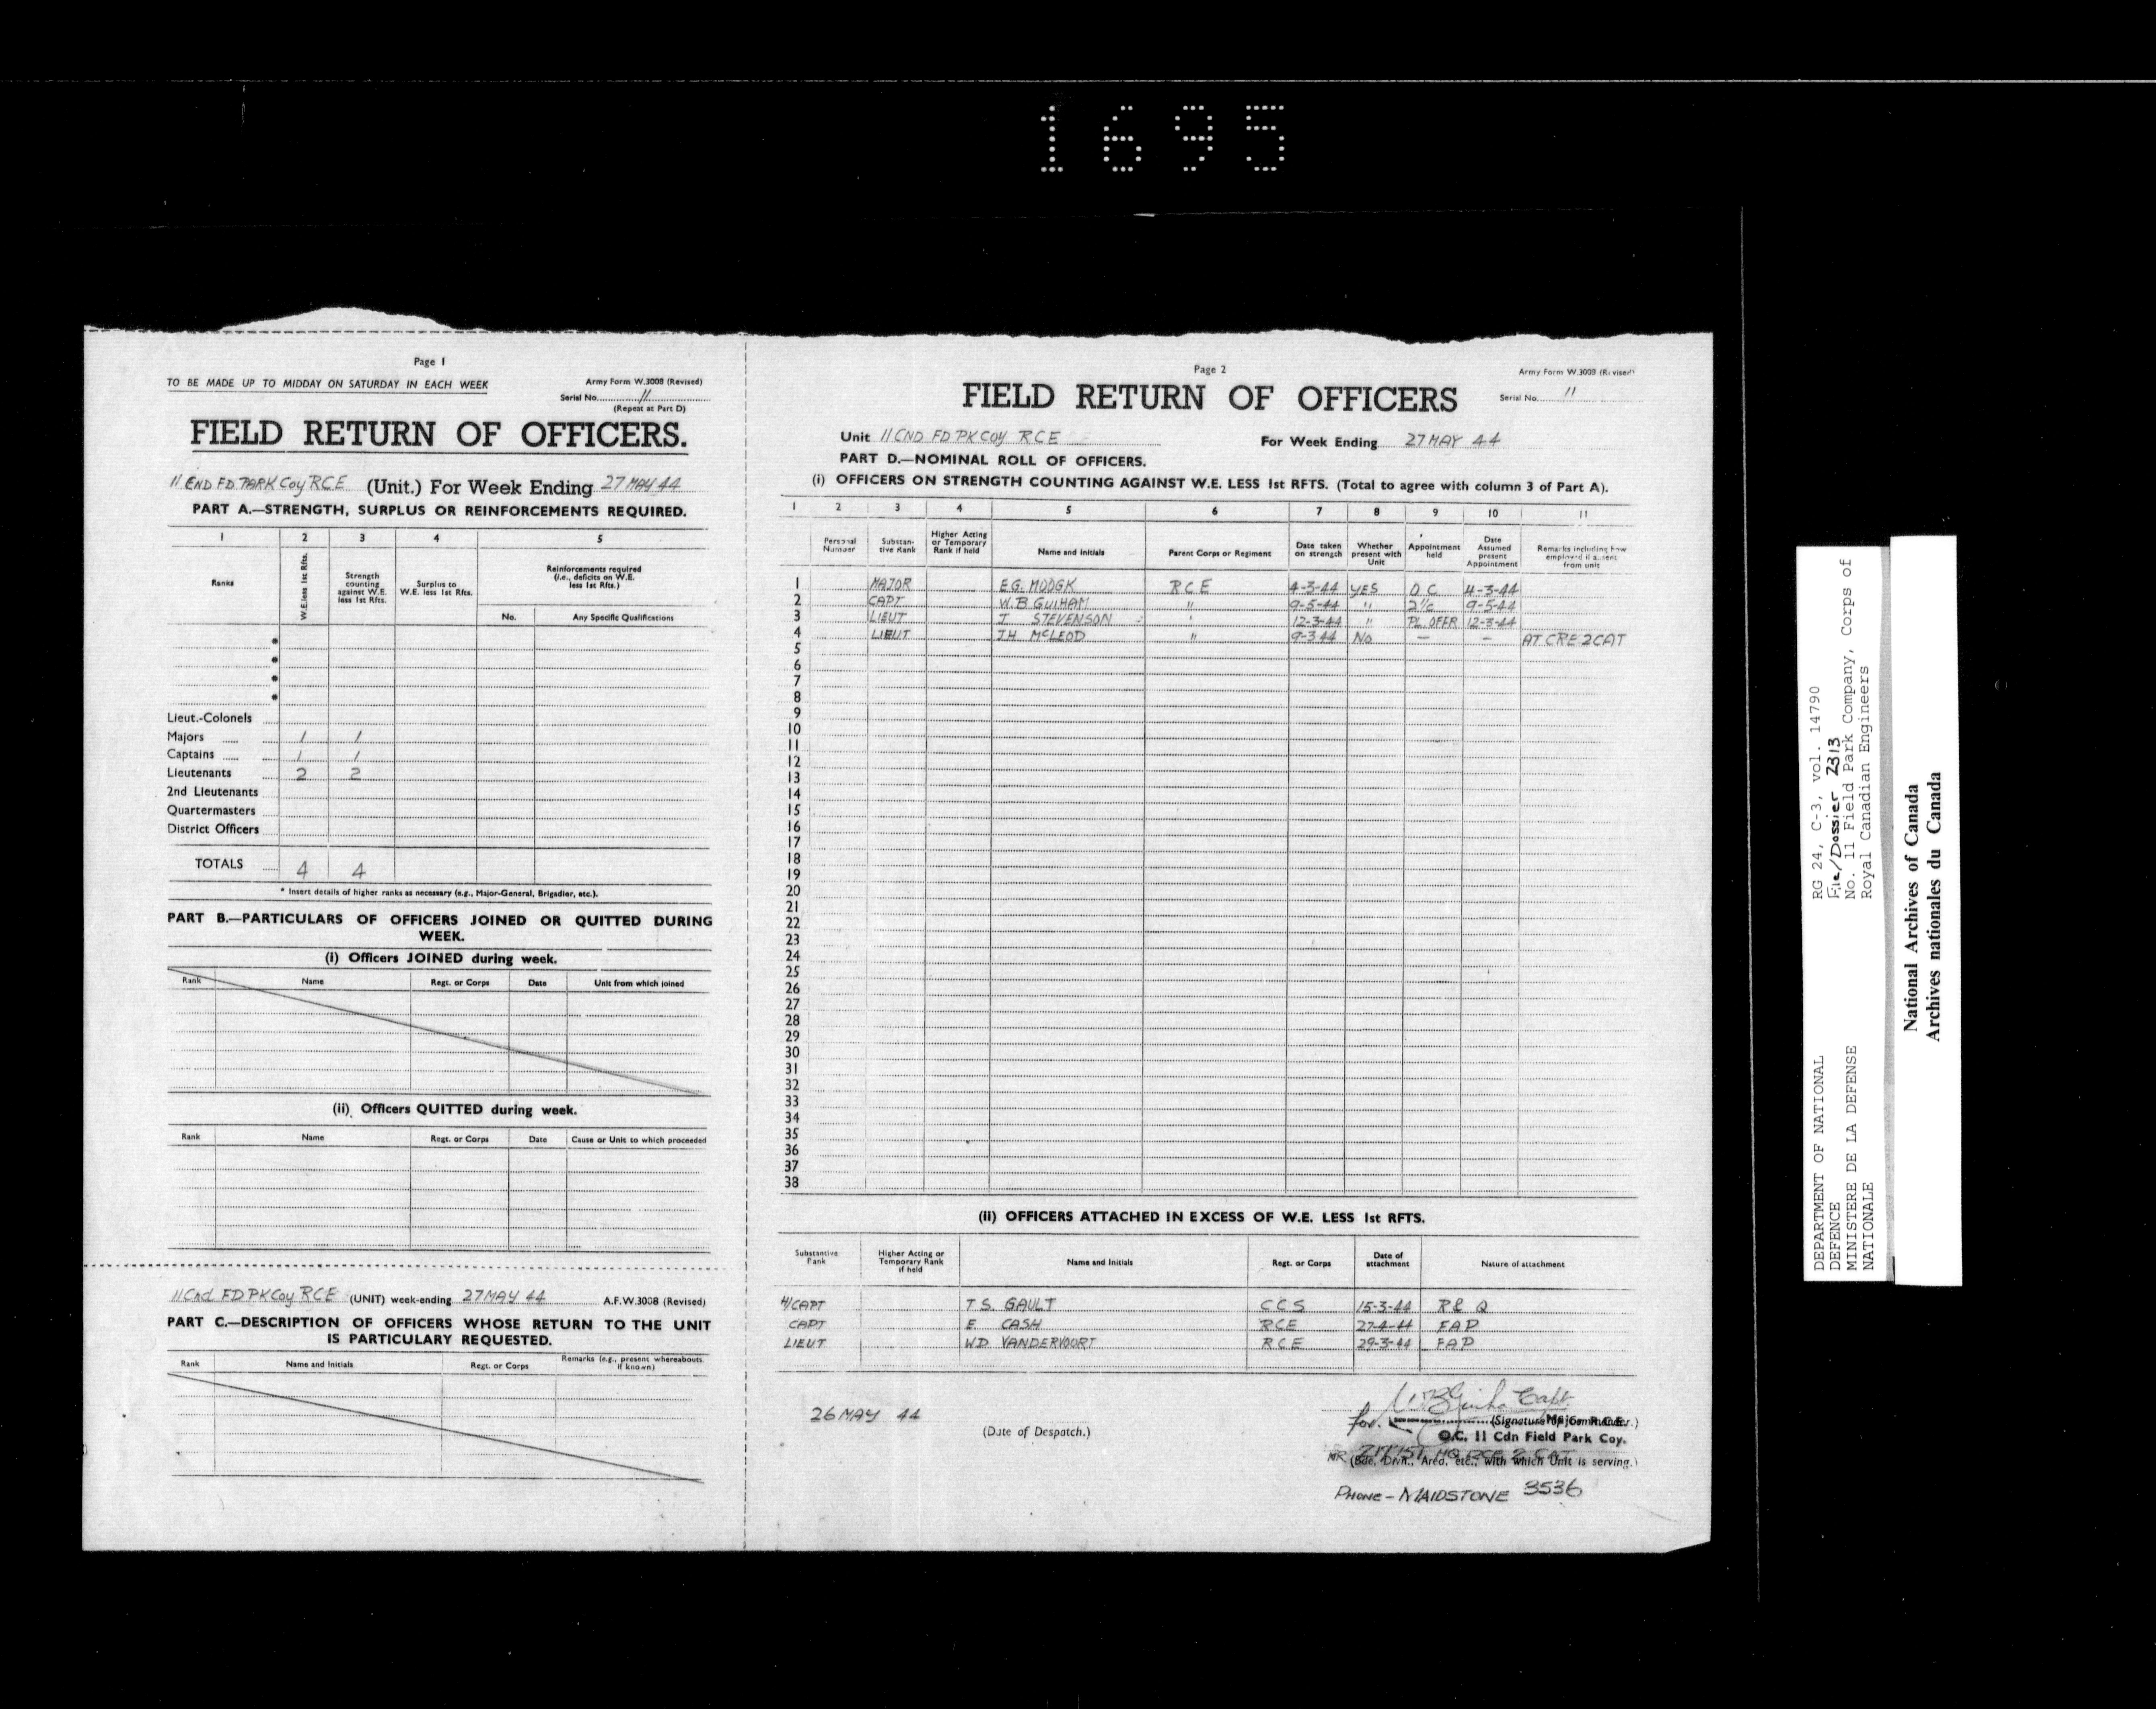 1695
Page 1
TO BE MADE UP TO MIDDAY ON SATURDAY IN EACH WEEK
Army Form W.3008 (Revised)
Serial No. 11
(Repeat at Part D)
FIELD RETURN OF OFFICERS.
11 CND FD PARK Coy RCE (Unit.) For Week Ending 27 MAY 44
PART A.—STRENGTH, SURPLUS OR REINFORCEMENTS REQUIRED.
1 2 3 4 5
Ranks
W.E. less 1st Rfts.
Strength counting against W.E. less 1st Rfts.
Surplus to W.E. less 1st Rfts.
Reinforcements required (i.e., deficits on W.E. less 1st Rfts.)
No. Any Specific Qualifications
*
*
*
*
Lieut.-Colonels
Majors 1 1
Captains 1 1
Lieutenants 2 2
2nd Lieutenants
Quartermasters
District Officers
TOTALS 4 4
* Insert details of higher ranks as necessary (e.g., Major-General, Brigadier, etc.).
PART B.—PARTICULARS OF OFFICERS JOINED OR QUITTED DURING
WEEK.
(i) Officers JOINED during week.
Rank Name Regt. or Corps Date Unit from which joined
(ii) Officers QUITTED during week.
Rank Name Regt. or Corps Date Cause or Unit to which proceeded
11 Cnd FD PK Coy RCE (UNIT) week-ending 27 MAY 44 A.F.W.3008 (Revised)
PART C.—DESCRIPTION OF OFFICERS WHOSE RETURN TO THE UNIT
IS PARTICULARY REQUESTED.
Rank Name and Initials Regt. or Corps Remarks (e.g., present whereabouts if known)
Page 2
Army Form W.3008 (Revised)
FIELD RETURN OF OFFICERS
Serial No. 11
Unit 11 CND FD PK COY RCE For Week Ending 27 MAY 44
PART D.—NOMINAL ROLL OF OFFICERS.
(i) OFFICERS ON STRENGTH COUNTING AGAINST W.E. LESS 1st RFTS. (Total to agree with column 3 of Part A).
1 2 3 4 5 6 7 8 9 10 11
Personal Number
Substantive Rank
Higher Acting or Temporary Rank if held
Name and Initials
Parent Corps or Regiment
Date taken on strength
Whether present with Unit
Appointment held
Date Assumed present Appointment
Remarks including how employed if absent from unit
1 MAJOR E.G. MODGK RCE 4-3-44 YES O C 4-3-44
2 CAPT W.B GUIHAM " 9-5-44 " 2 i/c 9-5-44
3 LIEUT J STEVENSON " 12-3-44 " PL OFFR 12-3-44
4 LIEUT J.H McLEOD " 9-3 44 No — - AT CRE 2 CAT
5
6
7
8
9
10
11
12
13
14
15
16
17
18
19
20
21
22
23
24
25
26
27
28
29
30
31
32
33
34
35
36
37
38
(ii) OFFICERS ATTACHED IN EXCESS OF W.E. LESS 1st RFTS.
Substantive Rank
Higher Acting or Temporary Rank if held
Name and Initials
Regt. or Corps
Date of attachment
Nature of attachment
H/CAPT T S. GAULT C C S 15-3-44 R & Q
CAPT E CASH RCE 27-4-44 FAP
LIEUT WD VANDERVOORT RCE 29-3-44 FAP
26 MAY 44
(Date of Despatch.)
Capt.
for. (Signature of Commander.)
Major R.C.E.
O.C. 11 Cdn Field Park Coy.
HQ RCE 2 CAT
(Bde., Divn., Area, etc., with which Unit is serving.)
PHONE - MAIDSTONE 3536
DEPARTMENT OF NATIONAL
DEFENCE
MINISTERE DE LA DEFENSE
NATIONALE
RG 24, C-3, vol. 14790
File/Dossier 2313
No. 11 Field Park Company, Corps of
Royal Canadian Engineers
National Archives of Canada
Archives nationales du Canada